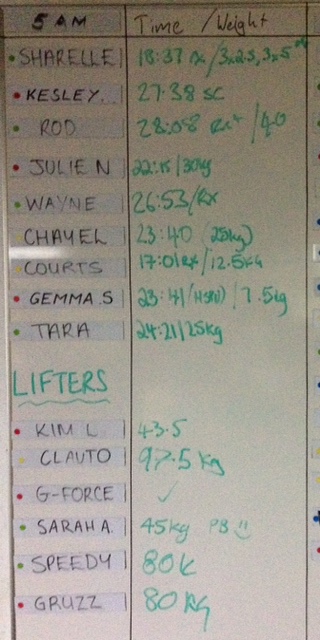 5 AM Time / Weight
SHARELLE 18:37 rx / 3x2.5, 3x5
KESLEY. 27:38 SC
ROD 28:08 Rx+ / 40
JULIE N 22:15 / 30kg
WAYNE 26:53 / Rx
CHAYEL 23:40 (25kg)
COURTS 17:01 Rx / 12.5KG
GEMMA.S 23:41 / (HSPU) / 7.5kg
TARA 24:21 / 25kg
LIFTERS
KIM L 43.5
CLAUTO 97.5 Kg
G-FORCE ✓
SARAH A. 45kg PB
SPEEDY 80K
GRUZZ 80 Kg